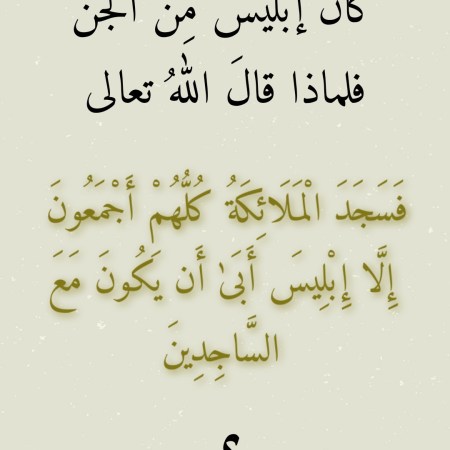 كان إبليس مِنَ الجن
فلماذا قالَ اللهُ تعالى
فَسَجَدَ الْمَلَائِكَةُ كُلُّهُمْ أَجْمَعُونَ
إِلَّا إِبْلِيسَ أَبَىٰ أَن يَكُونَ مَعَ
السَّاجِدِينَ
؟